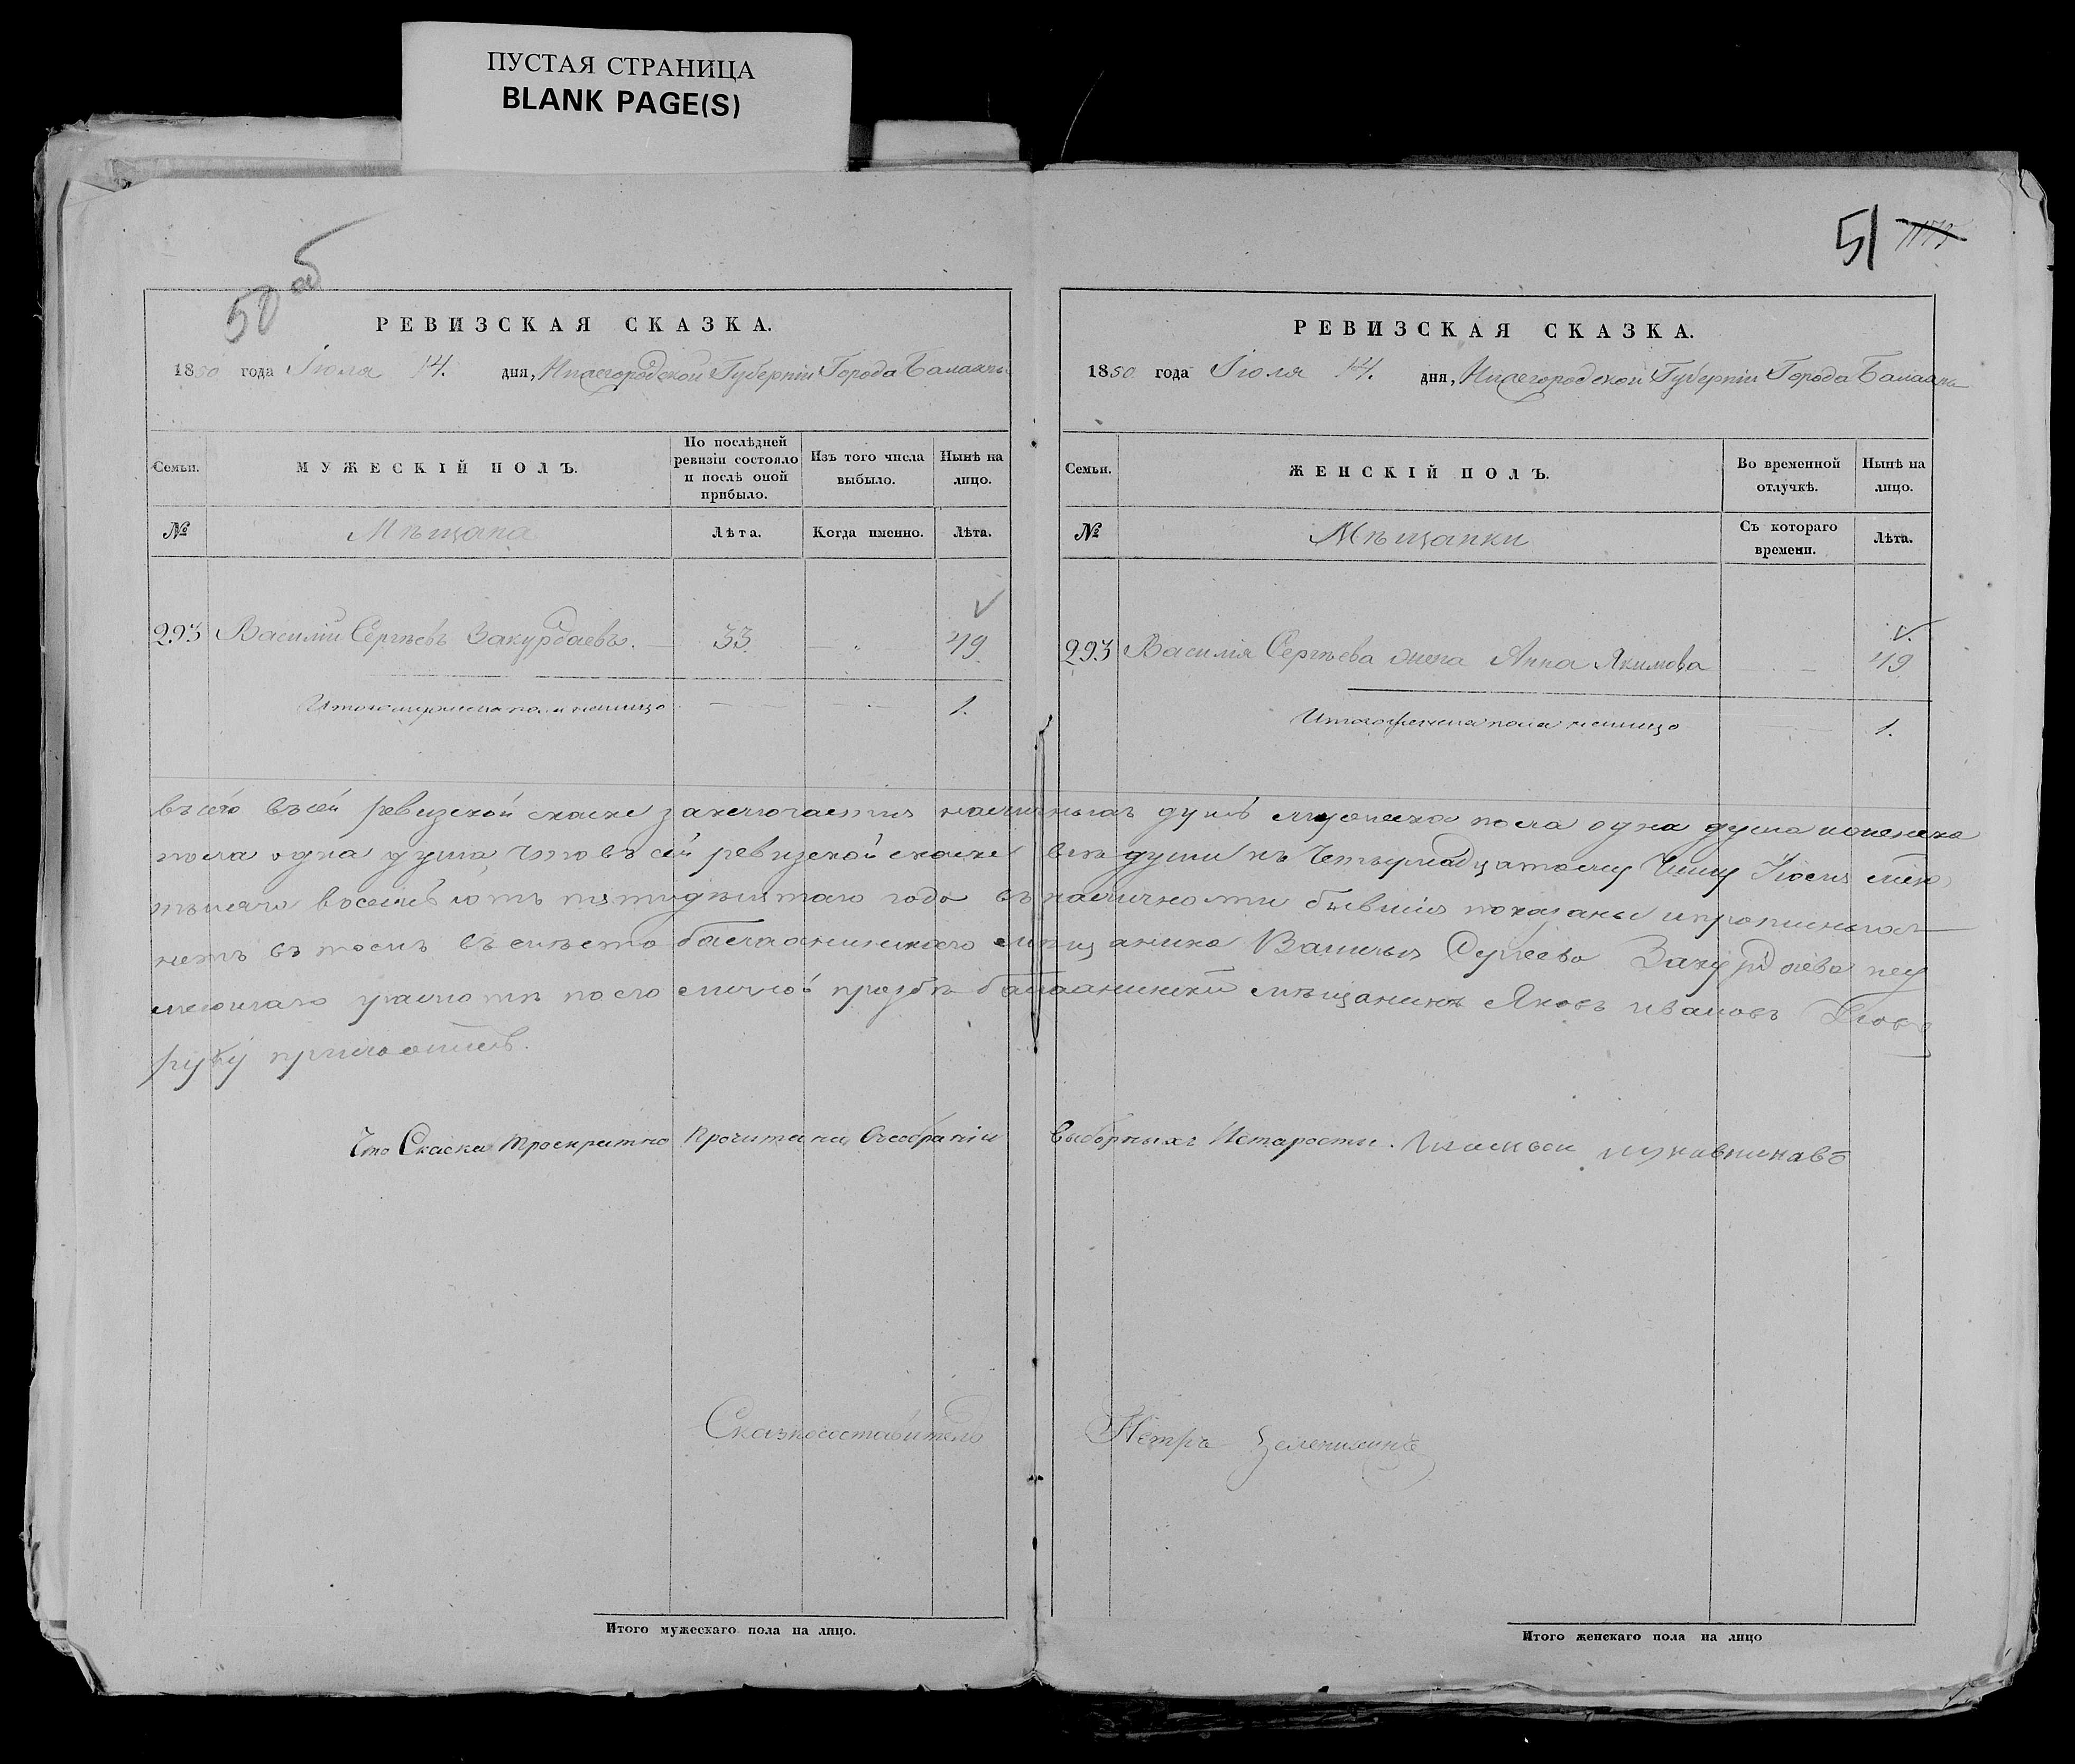 ПУСТАЯ СТРАНИЦА
BLANK PAGE(S)
50 об
РЕВИЗСКАЯ СКАЗКА.
1850 года Іюля 14. дня, Нижегородской Губерніи Города Балахны
Семьи.
МУЖЕСКІЙ ПОЛЪ.
По послѣдней ревизіи состояло и послѣ оной прибыло.
Изъ того числа выбыло.
Нынѣ на лицо.
№
Мѣщана
Лѣта.
Когда именно.
Лѣта.
293 Василій Сергѣевъ Закурдаевъ. 33. 49.
Итого мужеска пола налицо 1.
51
РЕВИЗСКАЯ СКАЗКА.
1850 года Іюля 14. дня, Нижегородской Губерніи Города Балахны
Семьи.
ЖЕНСКІЙ ПОЛЪ.
Во временной отлучкѣ.
Нынѣ на лицо.
№
Мѣщанки
Съ котораго времени.
Лѣта.
293 Василія Сергѣева жена Анна Якимова 49
Итого женска пола налицо 1.
всего въ сей ревизской скаске заключается наличныхъ душъ мужеска пола одна душа и женска
пола одна душа что въ сей ревизской скаске все души къ четырнадцатому числу Июля
тысяча восемь сотъ пятидесятаго года въ наличности бывшия показаны и прописныхъ
нетъ въ томъ вместо балахнинскаго мещанина Василья Сергеева Закурдаева неу
меющаго грамоте по его личной прозбе балахнинский мещанинъ Яковъ ивановъ
руку приложилъ.
Что Скаска троекратно прочитана Всобраніи выборныхъ Истаросты.
Сказкосоставитель Петръ
Итого мужескаго пола на лицо.
Итого женскаго пола на лицо